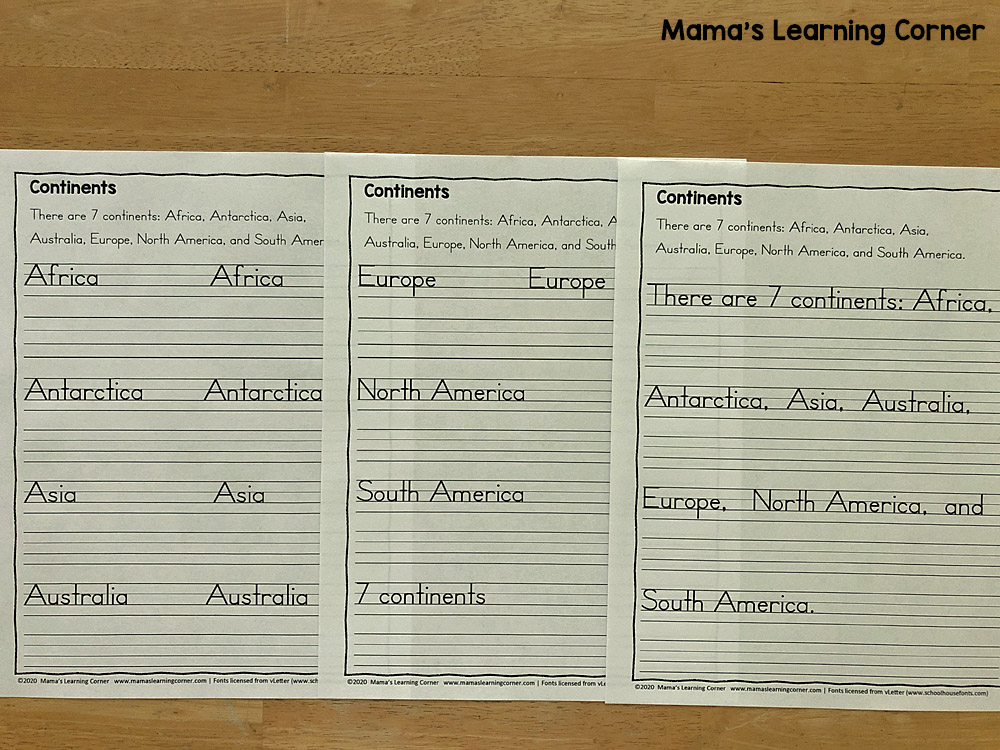 Mama's Learning Corner
Continents
There are 7 continents: Africa, Antarctica, Asia,
Australia, Europe, North America, and South Amer
Africa Africa
Antarctica Antarctica
Asia Asia
Australia Australia
©2020 Mama's Learning Corner www.mamaslearningcorner.com | Fonts licensed from vLetter (www.sch
Continents
There are 7 continents: Africa, Antarctica, A
Australia, Europe, North America, and South
Europe Europe
North America
South America
7 continents
©2020 Mama's Learning Corner www.mamaslearningcorner.com | Fonts licensed from vLe
Continents
There are 7 continents: Africa, Antarctica, Asia,
Australia, Europe, North America, and South America.
There are 7 continents: Africa,
Antarctica, Asia, Australia,
Europe, North America, and
South America.
©2020 Mama's Learning Corner www.mamaslearningcorner.com | Fonts licensed from vLetter (www.schoolhousefonts.com)